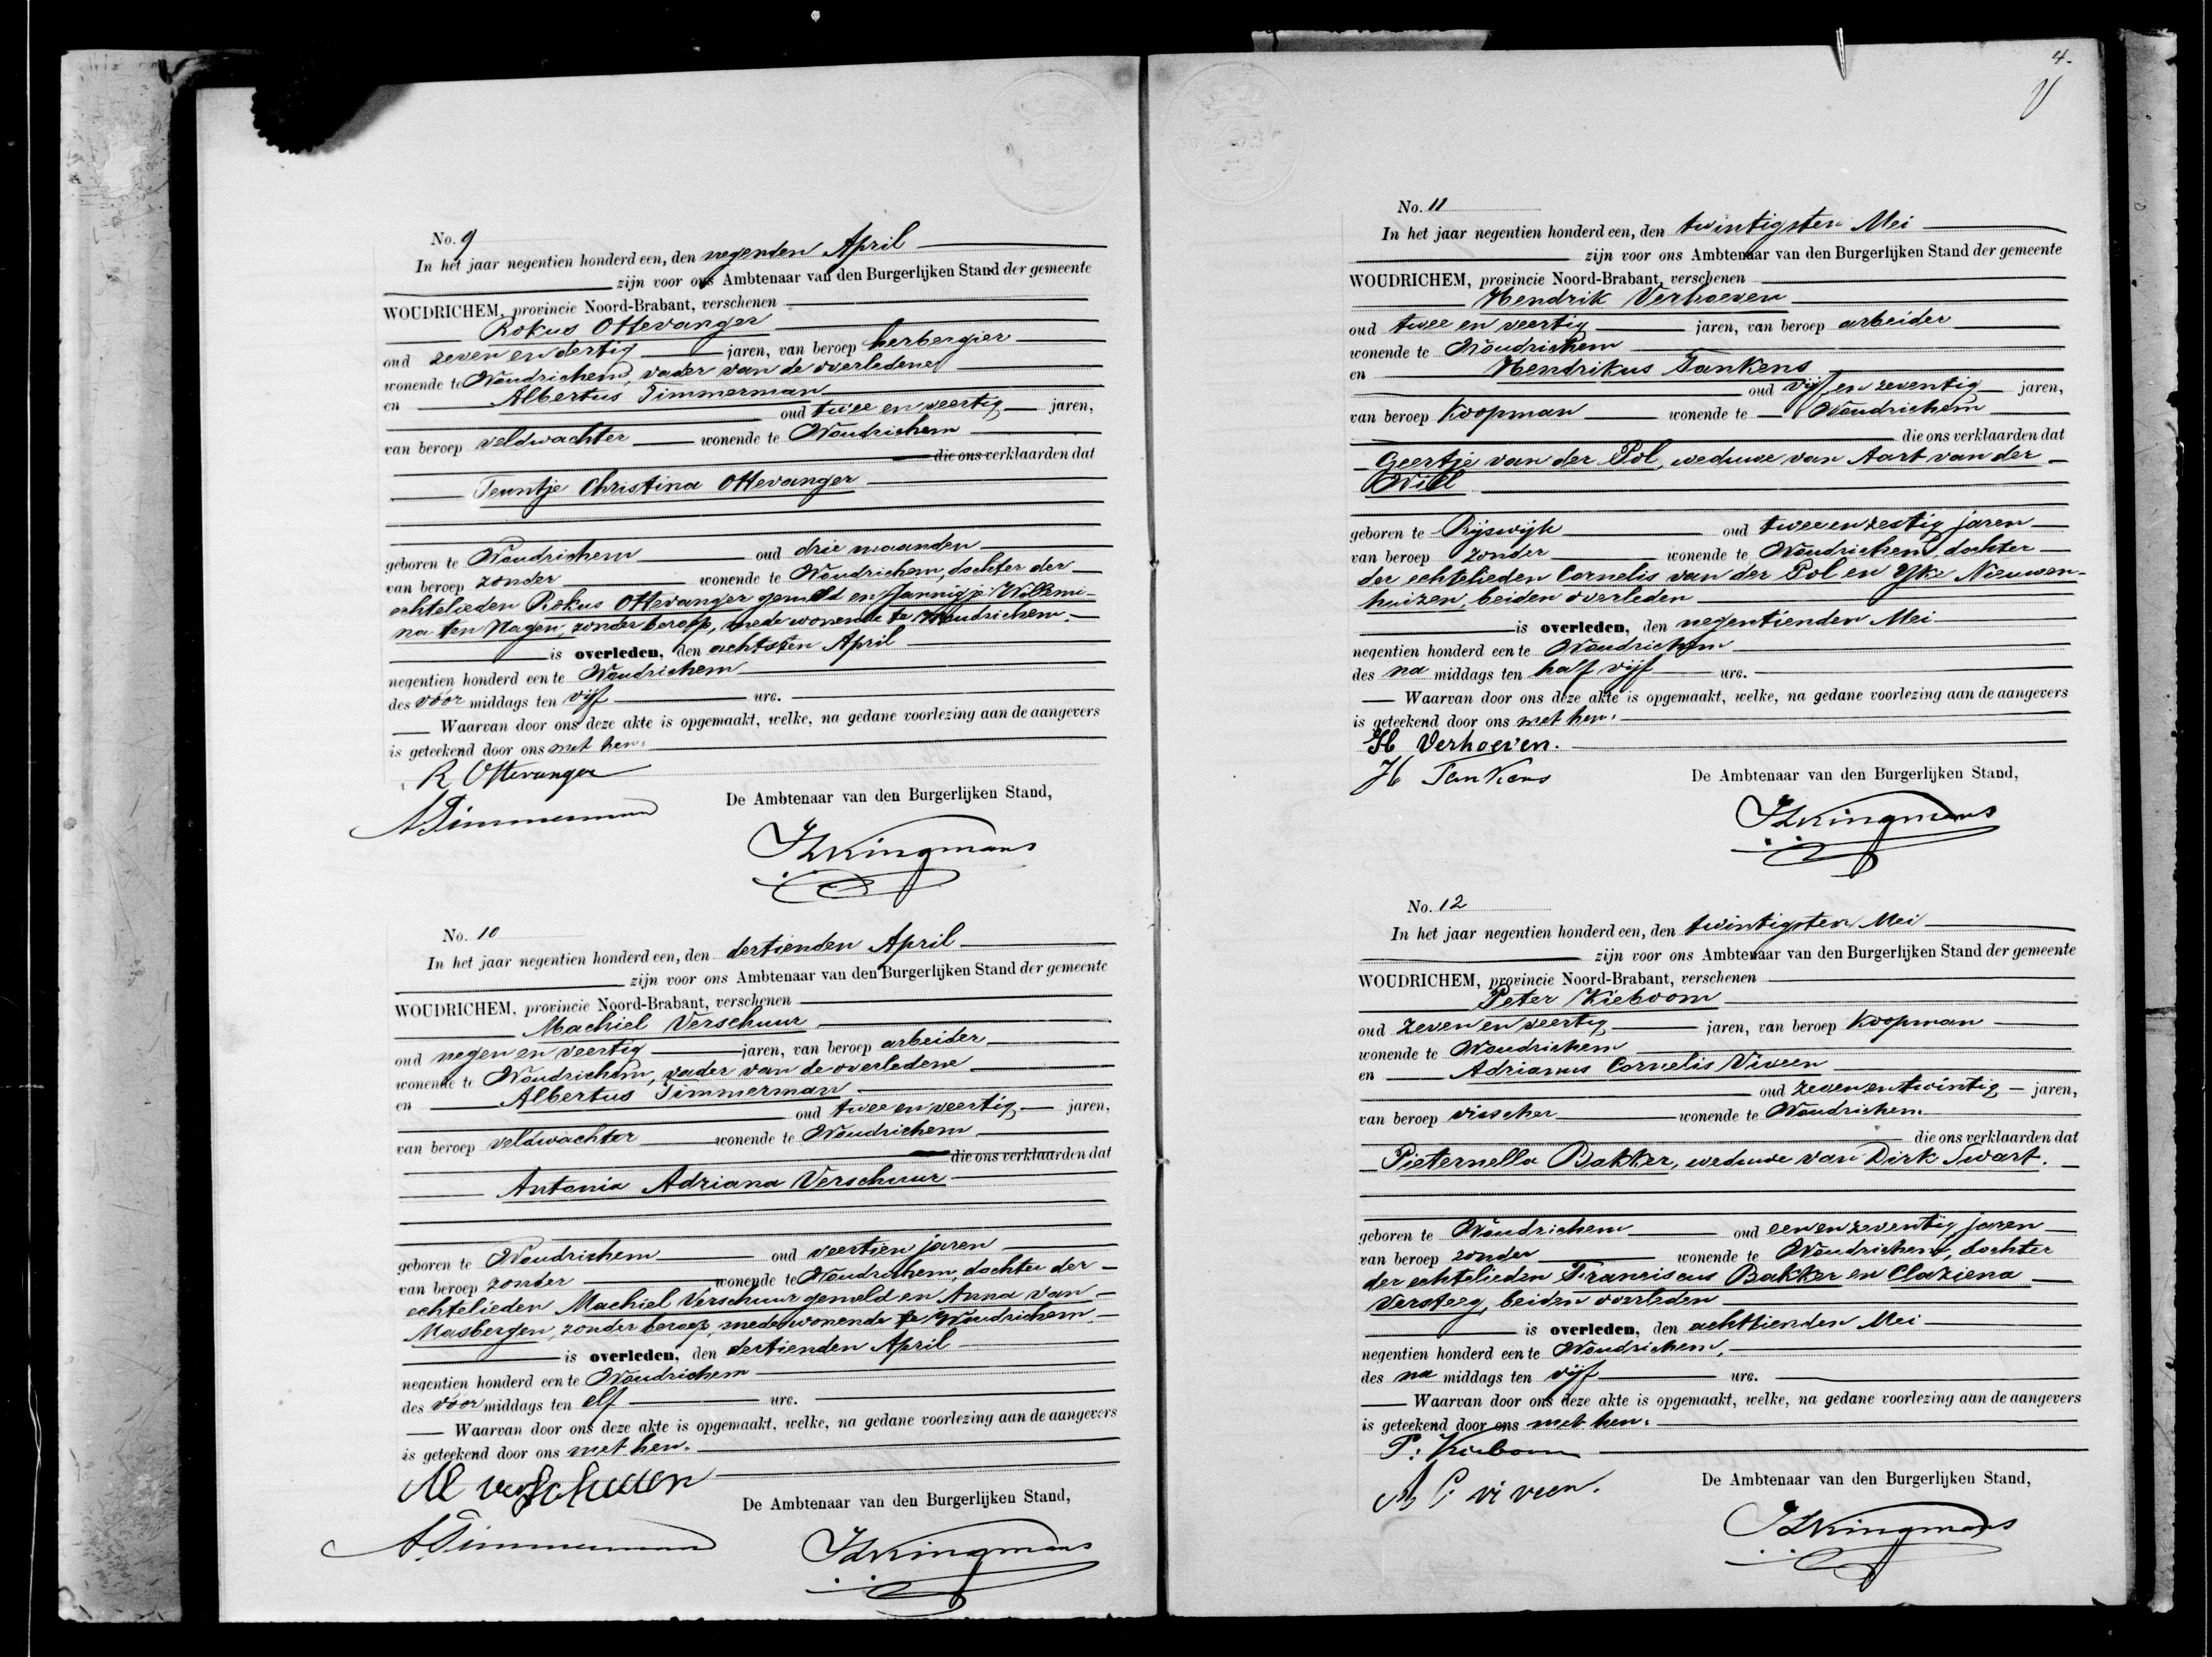 No. 9
In het jaar negentien honderd een, den negenden April
zijn voor ons Ambtenaar van den Burgerlijken Stand der gemeente
WOUDRICHEM, provincie Noord-Brabant, verschenen
Rokus Ottevanger
oud zeven en dertig jaren, van beroep herbergier
wonende te Woudrichem, vader van de overledene
en Albertus Timmerman
oud twee en veertig jaren,
van beroep veldwachter wonende te Woudrichem
die ons verklaarden dat
Teuntje Christina Ottevanger
geboren te Woudrichem oud drie maanden
van beroep zonder wonende te Woudrichem, dochter der
echtelieden Rokus Ottevanger gemeld en Jannigje Willemi-
na ten Hagen, zonder beroep, mede wonende te Woudrichem.
is overleden, den achtsten April
negentien honderd een te Woudrichem
des voor middags ten vijf ure.
Waarvan door ons deze akte is opgemaakt, welke, na gedane voorlezing aan de aangevers
is geteekend door ons met hen.
R Ottevanger
A Timmerman
De Ambtenaar van den Burgerlijken Stand,
Kingmans
No. 10
In het jaar negentien honderd een, den dertienden April
zijn voor ons Ambtenaar van den Burgerlijken Stand der gemeente
WOUDRICHEM, provincie Noord-Brabant, verschenen
Machiel Verschuur
oud negen en veertig jaren, van beroep arbeider
wonende te Woudrichem, vader van de overledene
en Albertus Timmerman
oud twee en veertig jaren,
van beroep veldwachter wonende te Woudrichem
die ons verklaarden dat
Antonia Adriana Verschuur
geboren te Woudrichem oud veertien jaren
van beroep zonder wonende te Woudrichem, dochter der
echtelieden Machiel Verschuur gemeld en Anna van
Masbergen, zonder beroep, mede wonende te Woudrichem.
is overleden, den dertienden April
negentien honderd een te Woudrichem
des voor middags ten elf ure.
Waarvan door ons deze akte is opgemaakt, welke, na gedane voorlezing aan de aangevers
is geteekend door ons met hen.
M verschuur
A Timmerman
De Ambtenaar van den Burgerlijken Stand,
Kingmans
4.
No. 11
In het jaar negentien honderd een, den twintigsten Mei
zijn voor ons Ambtenaar van den Burgerlijken Stand der gemeente
WOUDRICHEM, provincie Noord-Brabant, verschenen
Hendrik Verhoeven
oud twee en veertig jaren, van beroep arbeider
wonende te Woudrichem
en Hendrikus Tankens
oud vijf en zeventig jaren,
van beroep Koopman wonende te Woudrichem
die ons verklaarden dat
Geertje van der Pol, weduwe van Aart van der
Wiel
geboren te Rijswijk oud twee en zestig jaren
van beroep zonder wonende te Woudrichem, dochter
der echtelieden Cornelis van der Pol en Yke Nieuwen-
huizen, beiden overleden
is overleden, den negentienden Mei
negentien honderd een te Woudrichem
des na middags ten half vijf ure.
Waarvan door ons deze akte is opgemaakt, welke, na gedane voorlezing aan de aangevers
is geteekend door ons met hen.
H Verhoeven.
H Tankens
De Ambtenaar van den Burgerlijken Stand,
Kingmans
No. 12
In het jaar negentien honderd een, den twintigsten Mei
zijn voor ons Ambtenaar van den Burgerlijken Stand der gemeente
WOUDRICHEM, provincie Noord-Brabant, verschenen
Peter Kieboom
oud zeven en veertig jaren, van beroep Koopman
wonende te Woudrichem
en Adrianus Cornelis Viveen
oud zeven en twintig jaren,
van beroep visscher wonende te Woudrichem
die ons verklaarden dat
Pieternella Bakker, weduwe van Dirk Swart.
geboren te Woudrichem oud een en zeventig jaren
van beroep zonder wonende te Woudrichem, dochter
der echtelieden Franciscus Bakker en Claziena
Versteeg, beiden overleden
is overleden, den achttienden Mei
negentien honderd een te Woudrichem,
des na middags ten vijf ure.
Waarvan door ons deze akte is opgemaakt, welke, na gedane voorlezing aan de aangevers
is geteekend door ons met hen.
P. Kieboom
A C viveen.
De Ambtenaar van den Burgerlijken Stand,
Kingmans